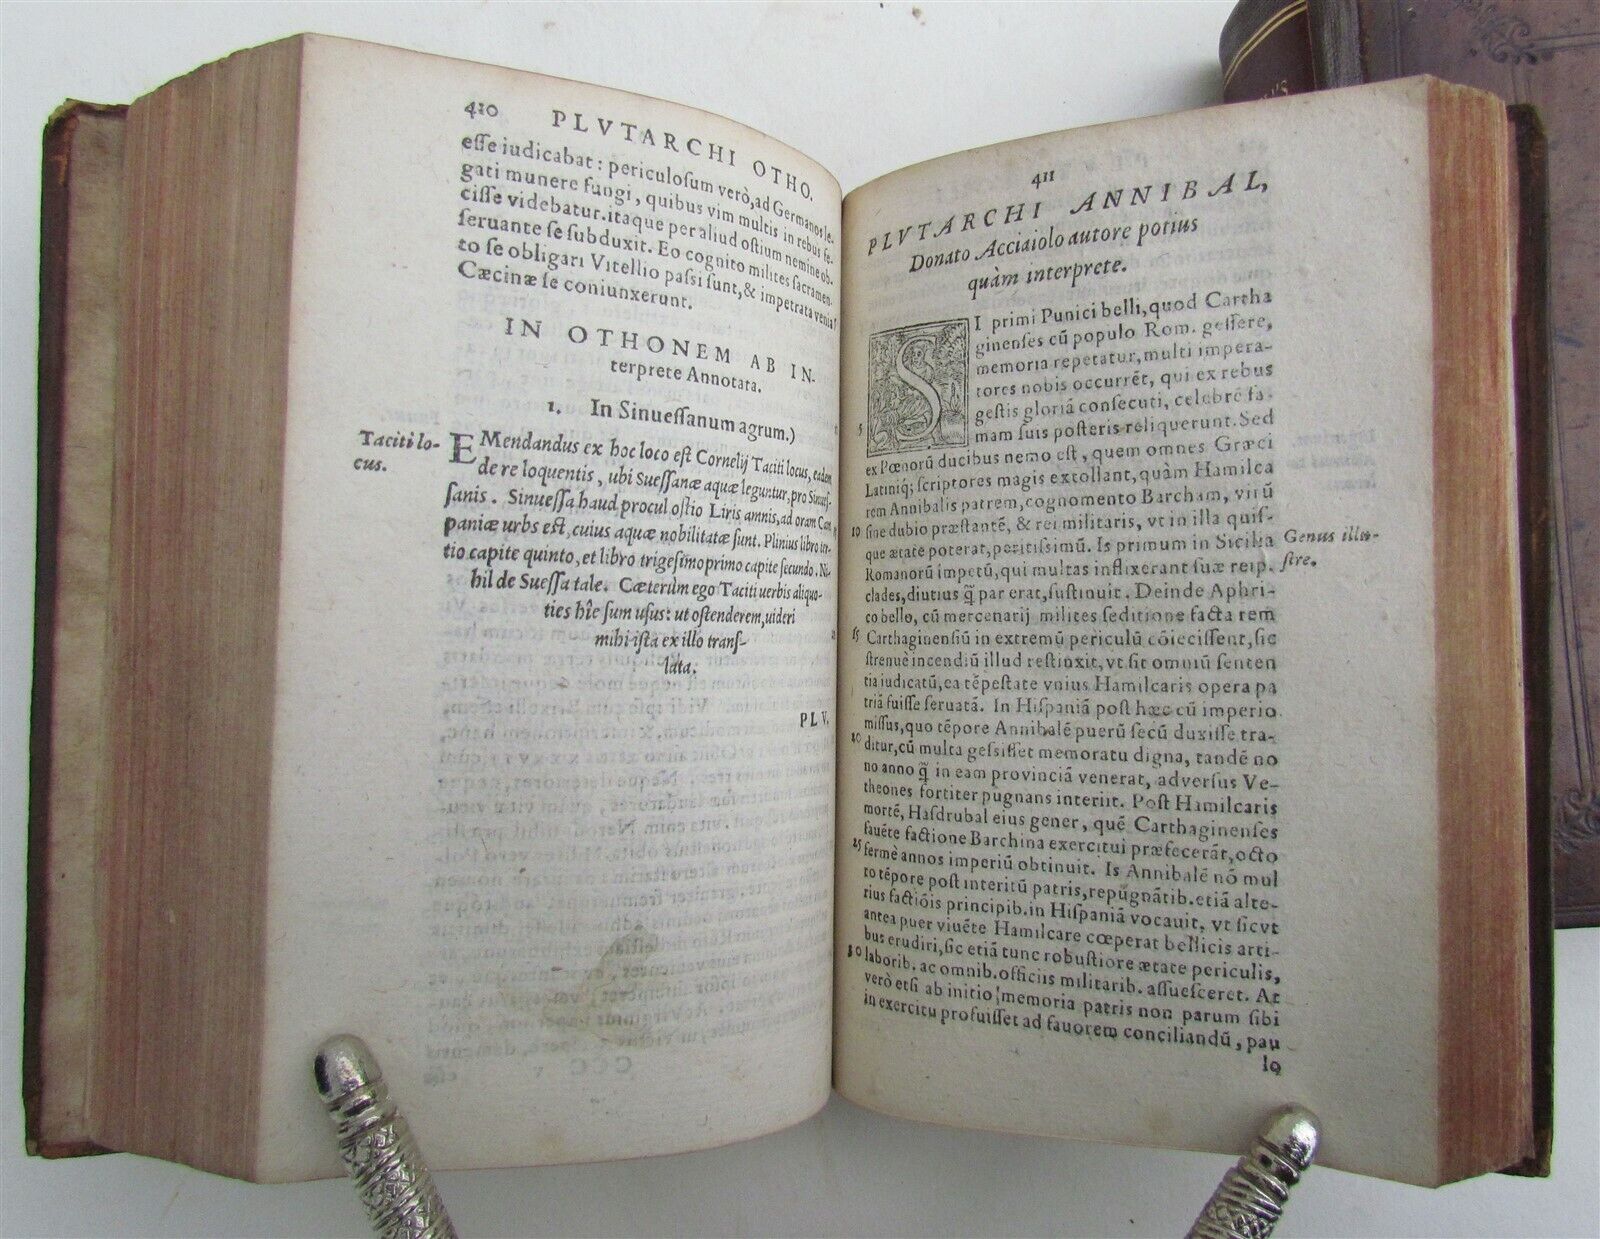 410
PLVTARCHI OTHO.
eſſe iudicabat: periculoſum verò, ad Germanos le-
gati munere fungi, quibus vim multis in rebus fe-
ciſſe videbatur. itaque per aliud oſtium nemine ob-
ſeruante ſe ſubduxit. Eo cognito milites ſacramen-
to ſe obligari Vitellio paſſi ſunt, & impetrata venia
Cæcinæ ſe coniunxerunt.
IN OTHONEM AB IN-
terprete Annotata.
1. In Sinueſſanum agrum.)
Taciti lo-
cus.
EMendandus ex hoc loco eſt Cornelij Taciti locus, eadem
de re loquentis, ubi Sueſſanæ aquæ leguntur, pro Sinueſ-
ſanis. Sinueſſa haud procul oſtio Liris amnis, ad oram Cam
paniæ urbs eſt, cuius aquæ nobilitatæ ſunt. Plinius libro ter-
tio capite quinto, et libro trigeſimoprimo capite ſecundo. Ni-
hil de Sueſſa tale. Cæterùm ego Taciti uerbis aliquo-
ties hîc ſum uſus: ut oſtenderem, uideri
mihi iſta ex illo tranſ-
lata.
PLV.
411
PLVTARCHI ANNIBAL,
Donato Acciaiolo autore potius
quàm interprete.
SI primi Punici belli, quod Cartha
ginenſes cū populo Rom. geſſere,
memoria repetatur, multi impera-
tores nobis occurrēt, qui ex rebus
geſtis gloriā conſecuti, celebrē fa-
5 mam ſuis poſteris reliquerunt. Sed
ex Pœnorū ducibus nemo eſt, quem omnes Græci
Latiniq; ſcriptores magis extollant, quàm Hamilca
rem Annibalis patrem, cognomento Barcham, virū
10 ſine dubio præſtantē, & rei militaris, vt in illa quiſ-
que ætate poterat, peritiſſimū. Is primum in Sicilia
Genus illu-
ſtre.
Romanorū impetū, qui multas inflixerant ſuæ reip.
clades, diutius q̃ par erat, ſuſtinuit. Deinde Aphri-
co bello, cū mercenarij milites ſeditione facta rem
15 Carthaginenſiū in extremū periculū cōieciſſent, ſic
ſtrenuè incendiū illud reſtinxit, vt ſit omniū ſenten
tia iudicatū, ea tēpeſtate vnius Hamilcaris opera pa
triā fuiſſe ſeruatā. In Hiſpaniā poſt hæc cū imperio
miſſus, quo tēpore Annibalē puerū ſecū duxiſſe tra-
20 ditur, cū multa geſſiſſet memoratu digna, tandē no
no anno q̃ in eam prouinciā venerat, adverſus Ve-
theones fortiter pugnans interiit. Poſt Hamilcaris
mortē, Haſdrubal eius gener, quē Carthaginenſes
fauēte factione Barchina exercitui præfecerāt, octo
25 fermè annos imperiū obtinuit. Is Annibalē nō mul
to tēpore poſt interitū patris, repugnātib. etiā alte-
rius factiōis principib. in Hiſpaniā vocauit, vt ſicut
antea puer viuēte Hamilcare cœperat bellicis arti-
bus erudiri, ſic etiā tunc robuſtiore ætate periculis,
30 laborib. ac omnib. officiis militarib. aſſueſceret. At
verò etſi ab initio memoria patris non parum ſibi
in exercitu profuiſſet ad fauorem conciliandū, pau
lo